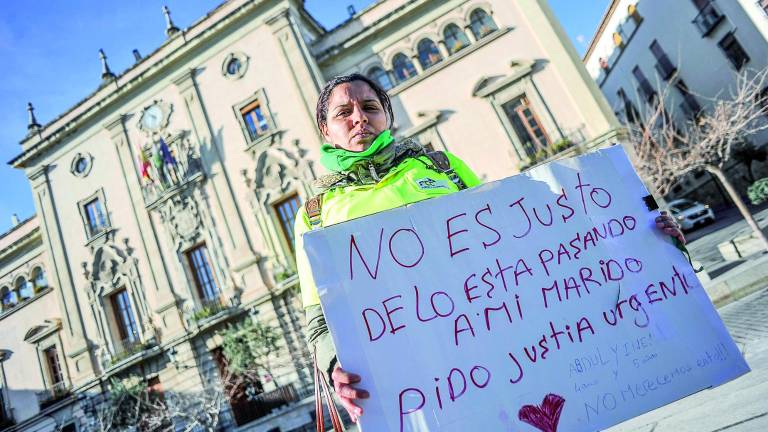 NO ES JUSTO
DE LO ESTA PASANDO
A MI MARIDO
PIDO JUSTIA URGENTE
ABDUL Y INES
4 años y 5 años
NO Merecemos esto!!!